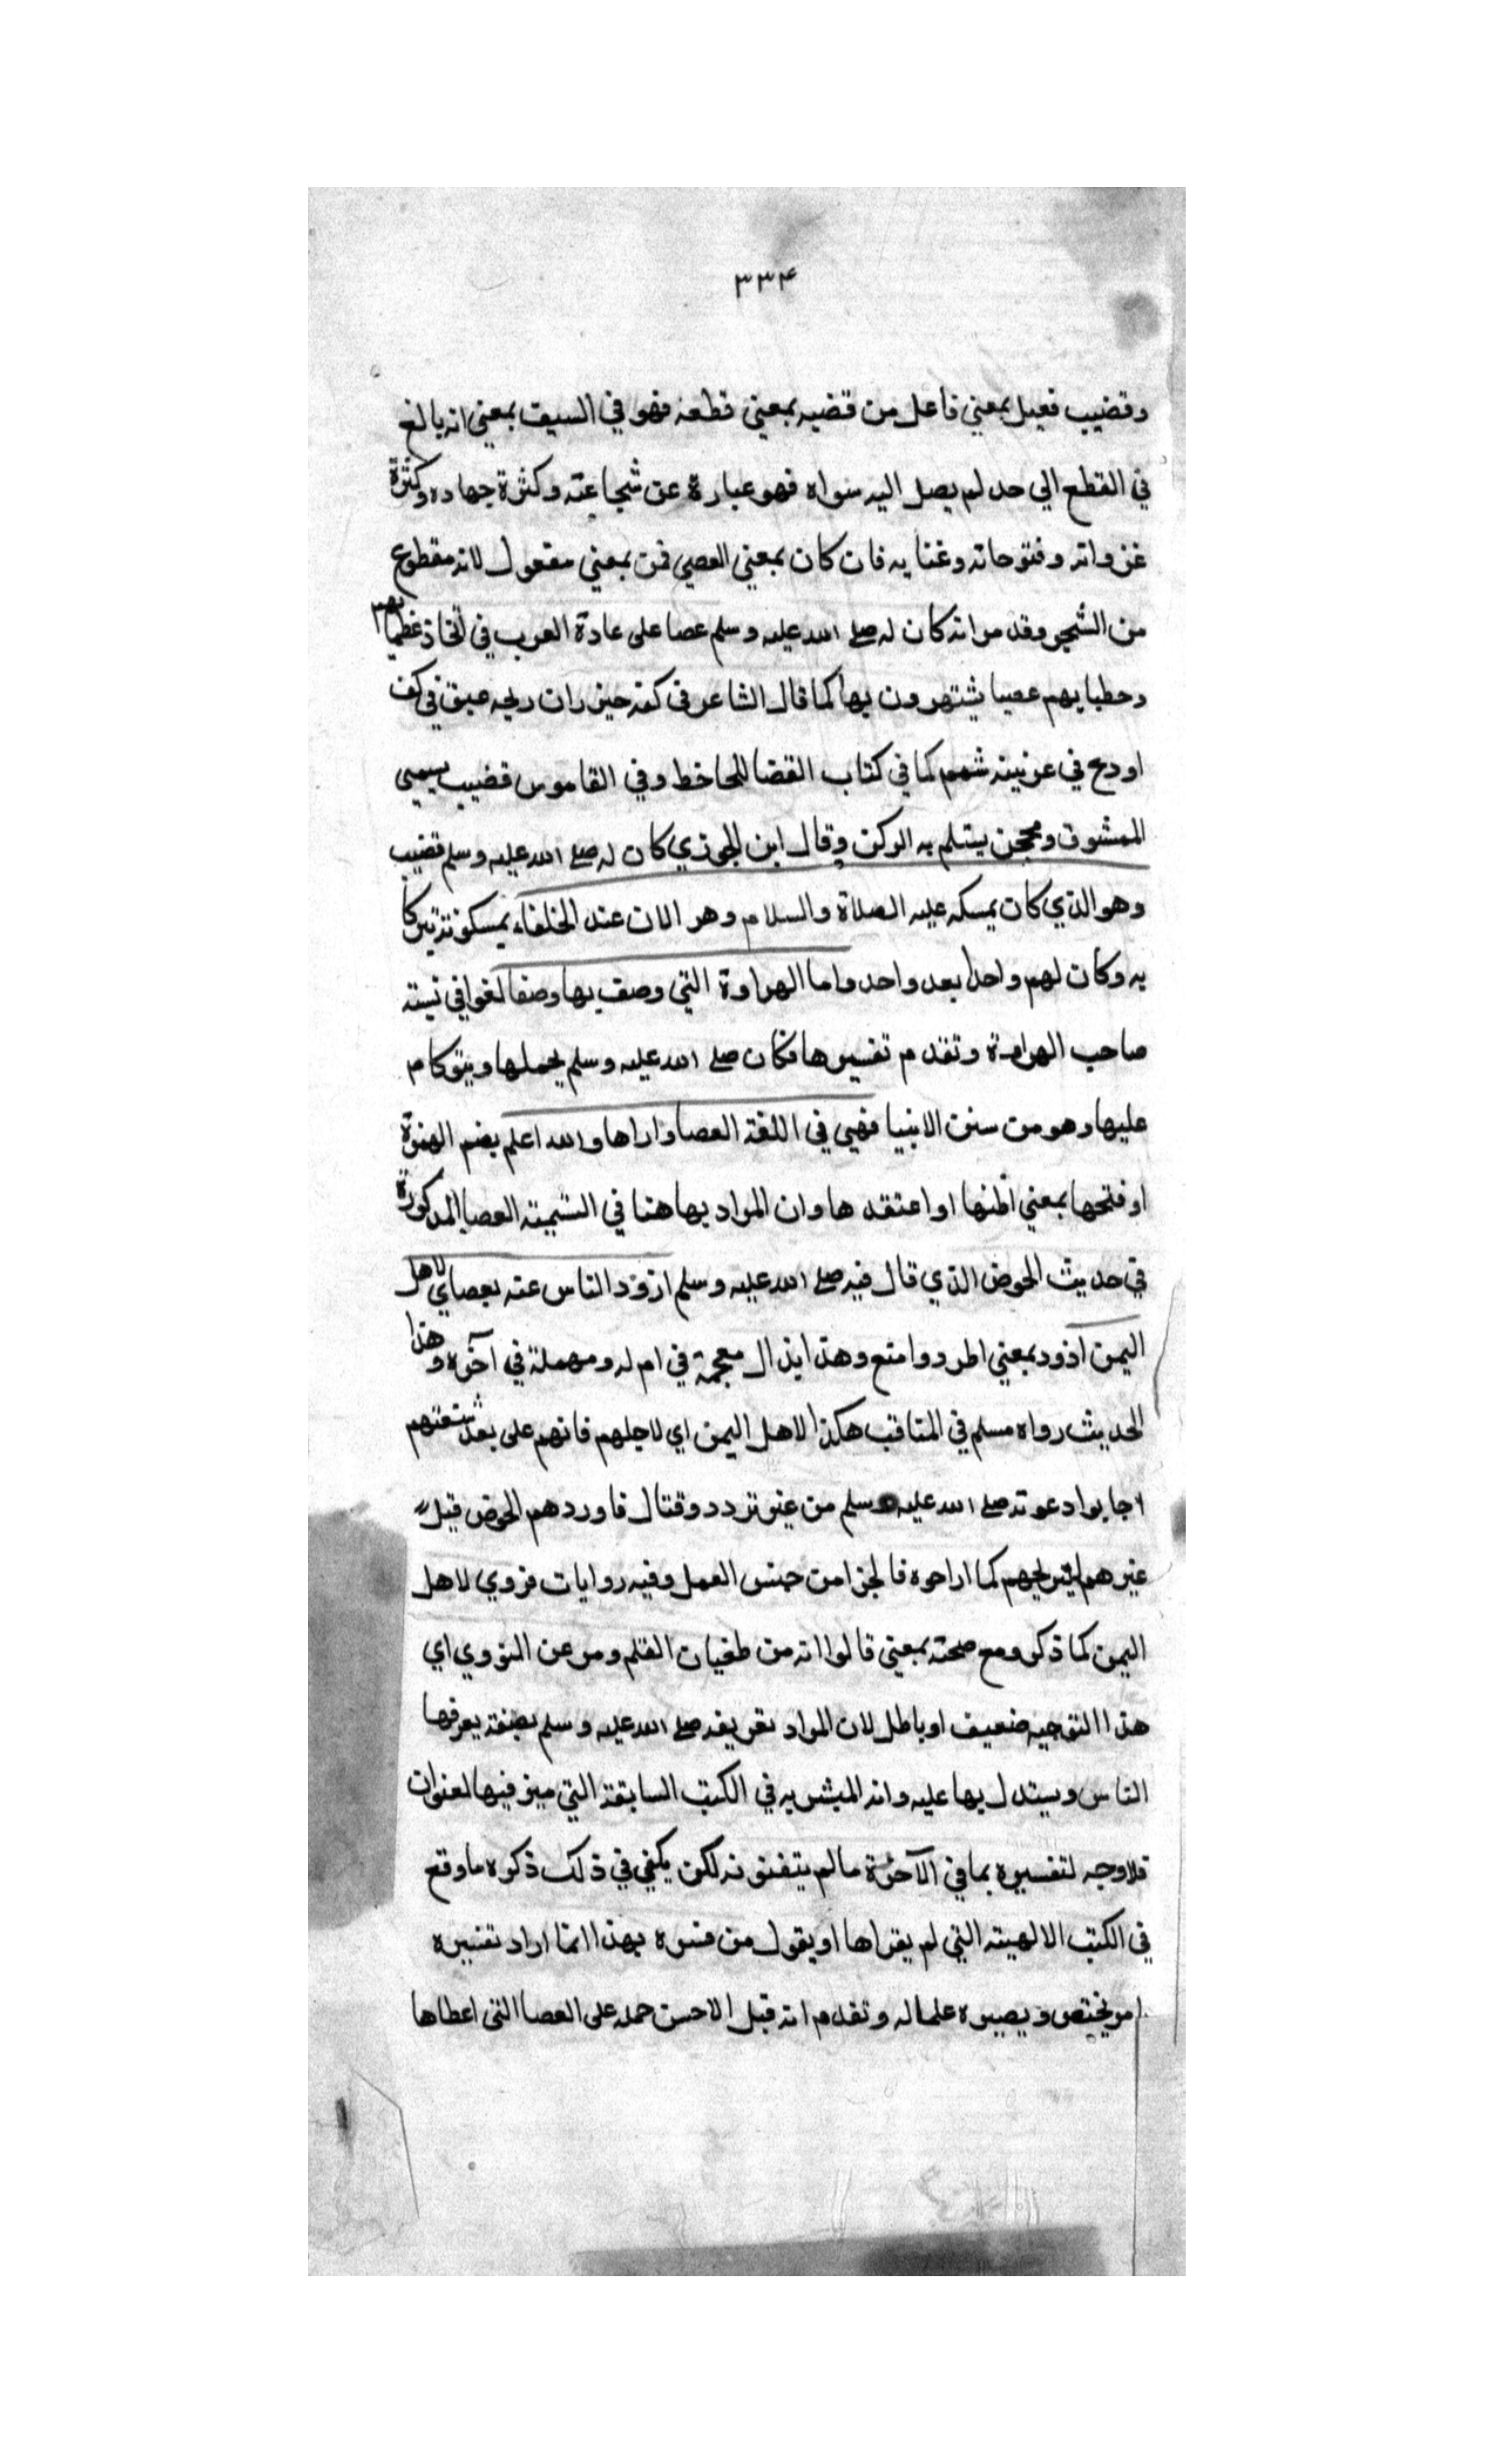 ٣٣٤
وقضيب فعيل بمعني فاعل من قضبه بمعني قطعه فهو في السيف بمعني انه بالغ
في القطع الي حد لم يصل اليه سواه فهو عبارة عن شجاعته وكثرة جهاده وكثرة
غزواته وفتوحاته وغنايه فان كان بمعني العصي فمن بمعني مفعول لانه مقطوع
من الشجر وقد مر انه كان له صلي الله عليه وسلم عصا علي عادة العرب في اتخاذ عظمايهم
وخطبايهم عصيا يشتهرون بها كما قال الشاعر في كفه خيزران ريحه عبق في كف
اروح في عرنينه شمم كما في كتاب العصا للجاحظ وفي القاموس قضيب يسمي
الممشوق ومحجن يستلم به الركن وقال ابن الجوزي كان له صلي الله عليه وسلم قضيب
وهو الذي كان يمسكه عليه الصلاة والسلام وهو الان عند الخلفاء يمسكونه تبركا
به وكان لهم واحدا بعد واحد واما الهراوة التي وصف بها وصفا لغوا في
صاحب الهراوة وتقدم تفسيرها فكان صلي الله عليه وسلم يحملها ويتوكا
عليها وهو من سنن الانبيا فهي في اللغة العصا واراها والله اعلم بضم الهمزة
او فتحها بمعني اظنها او اعتقدها وان المراد بها هنا في التسمية العصا المذكورة
في حديث الحوض الذي قال فيه صلي الله عليه وسلم ازود الناس عنه بعصاي لاهل
اليمن اذود بمعني اطرد وامنع وهذا بذال معجمة في اوله ومهملة في آخره وهذا
الحديث رواه مسلم في المناقب هكذا لاهل اليمن اي لاجلهم فانهم علي بعد شقتهم
اجابوا دعوته صلي الله عليه وسلم من غير تردد وقتال فاوردهم الحوض قبل
غيرهم ليريحهم كما اراحوه فالجزا من جنس العمل وفيه روايات فروي لاهل
اليمن كما ذكر ومع صحته بمعني قالوا انه من طغيان القلم ومر عن النووي اي
هذا التوجيه ضعيف او باطل لان المراد تعريفه صلي الله عليه وسلم بصفة يعرفها
الناس ويستدل بها عليه وانه المبشر به في الكتب السابقة التي ميز فيها لعنوان
فلا وجه لتفسيره بما في الآخرة مالم يتفقونه لكن يكفي في ذلك ذكره ما وقع
في الكتب الالهية التي لم يقراها او يقول من فسره بهذا انما اراد تفسيره
امر يختص ويصيره علما له وتقدم انه قيل الاحسن حمله علي العصا التي اعطاها